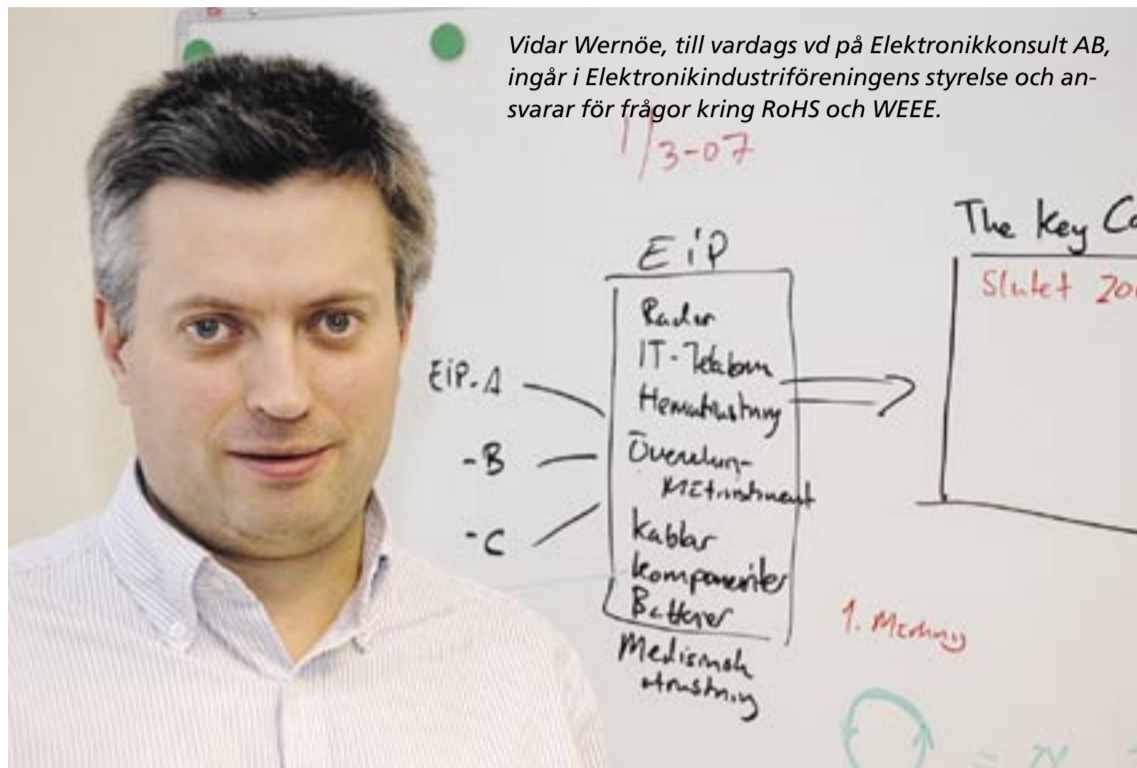 Vidar Wernöe, till vardags vd på Elektronikkonsult AB,
ingår i Elektronikindustriföreningens styrelse och an-
svarar för frågor kring RoHS och WEEE.
1/3-07
EiP
The Key
Slutet
Radar
IT-Telekom
EiP-A
-B
-C
Kablar
komponenter
Batterier
Medisinsk
utrustning
1.
=